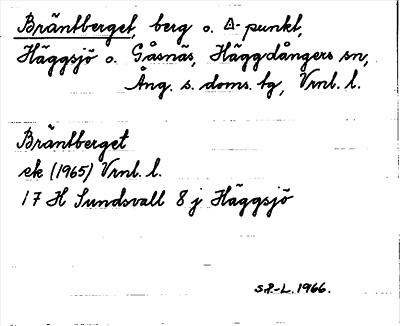 Bräntberget, berg o. △-punkt,
Häggsjö o. Gåsnäs, Häggdångers sn,
Ång. s. doms. tg, Vrnl. l.
Bräntberget
ek (1965) Vrnl. l.
17 H Sundsvall 8 j Häggsjö
S.P.-L. 1966.